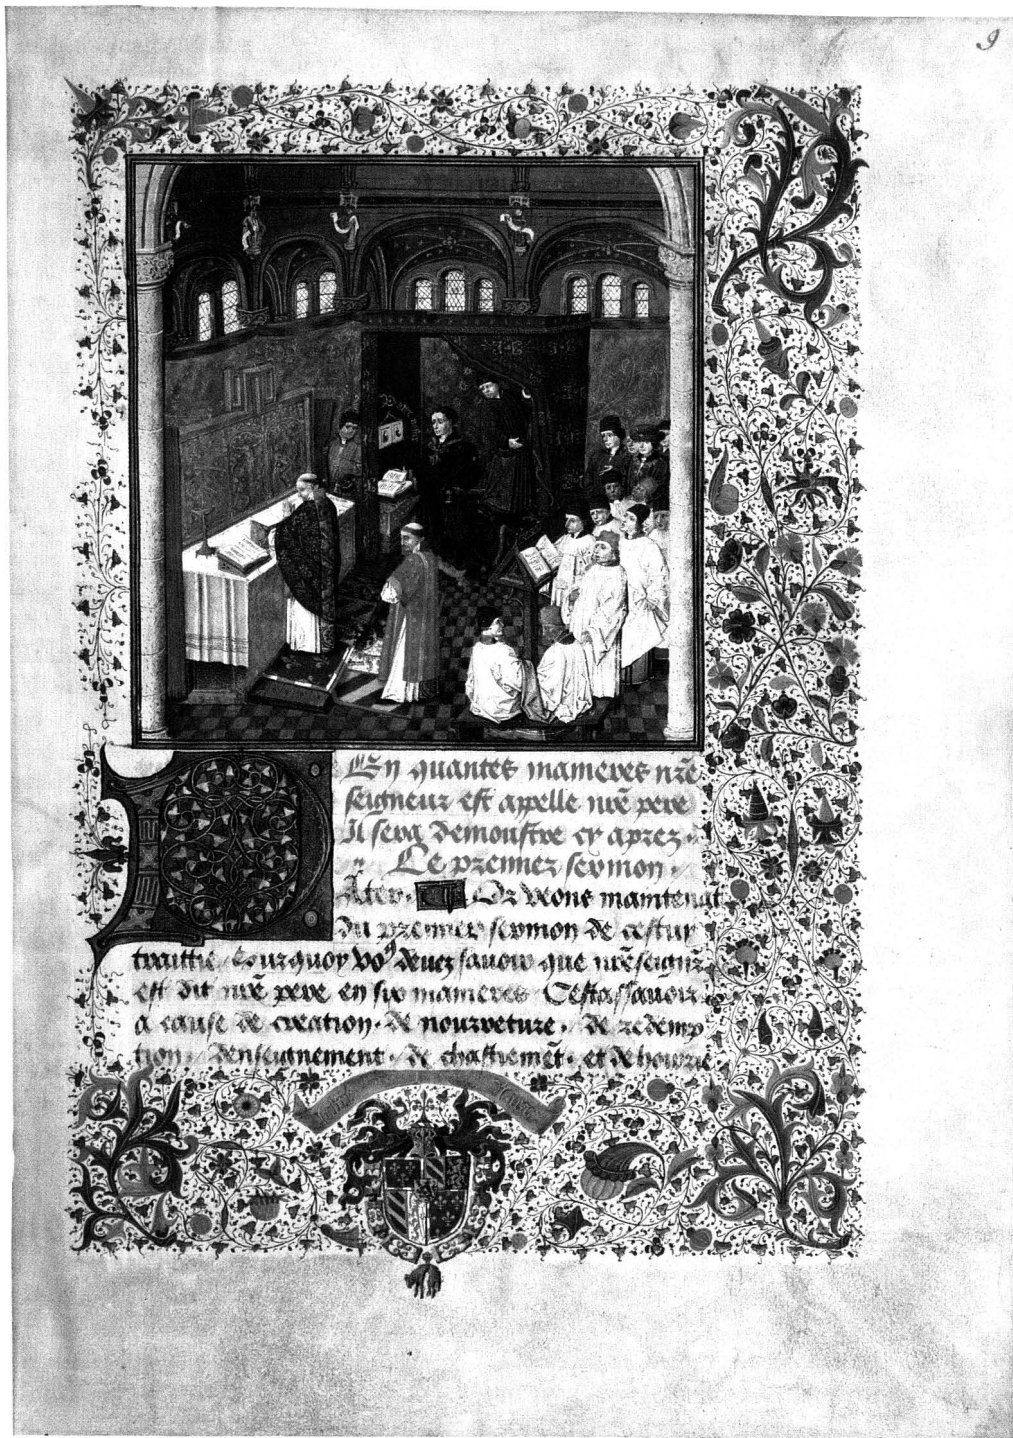 9
En quantes manieres nr̄e
seigneur est apelle nr̄e pere
Il sera demoustre cy aprez.
Le premier sermon.
Ater. Or veons maintenāt
du premier sermon de cestuy
traittie. Pourquoy vo⁹ deuez sauoir que nr̄e seignr̄
est dit nr̄e pere en six manieres Cest assauoir
a cause de creation. de nourreture. de redemp
tion. denseignement. de chastiemēt. et de